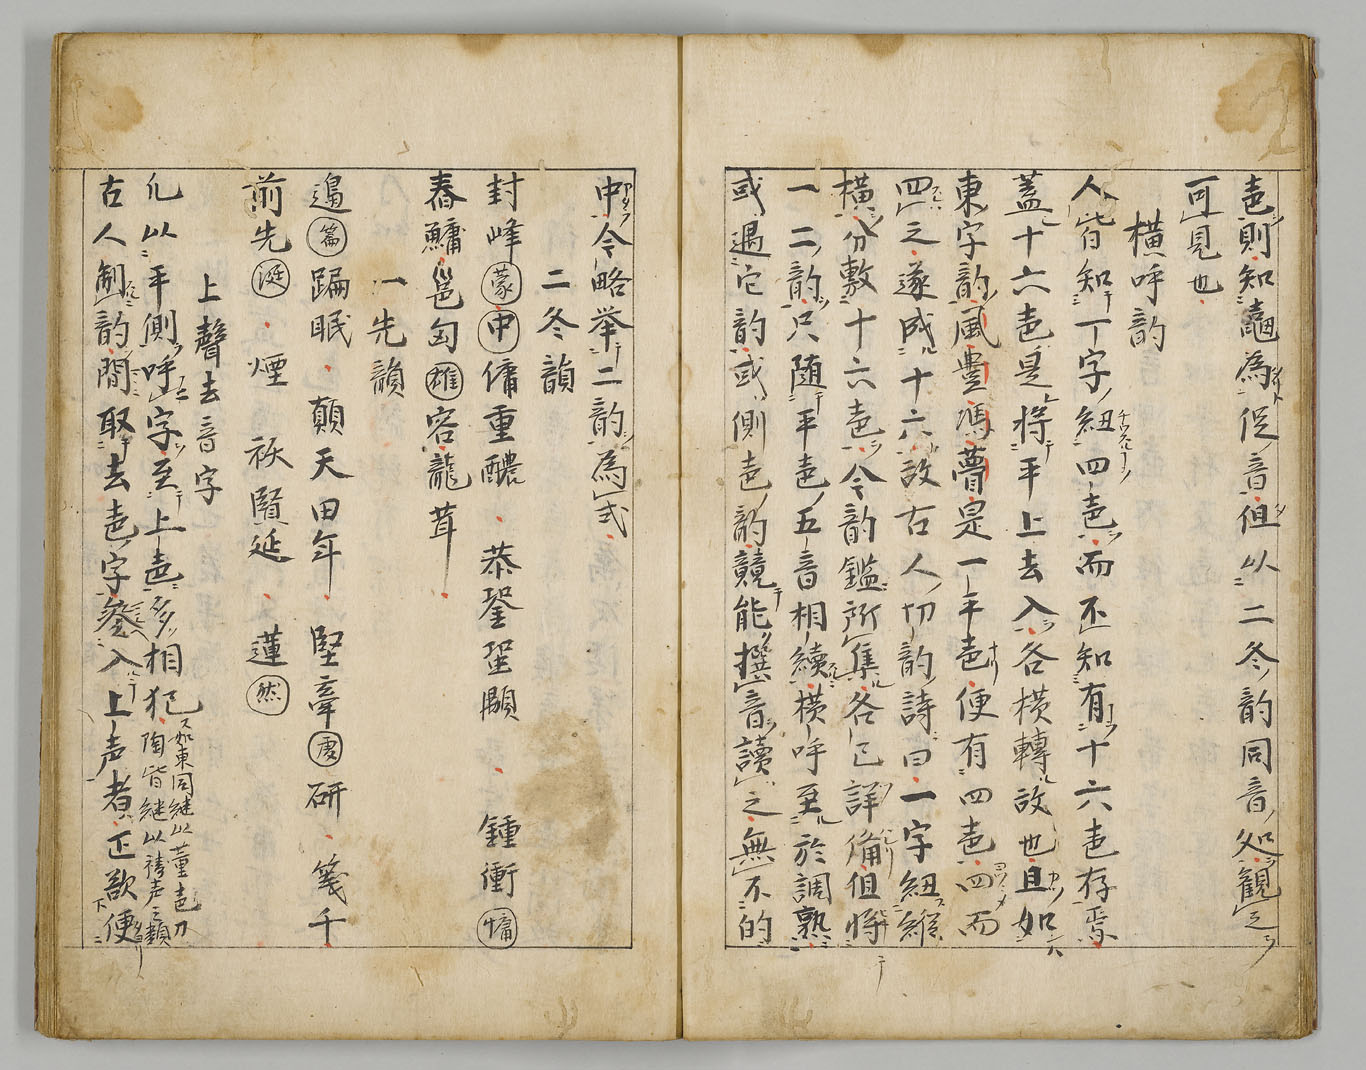 音則知聾為從音但以二冬韵同音処観之
可見也
横呼韵
人皆知丁字紐四声而不知有十六声存焉
蓋十六声是将平上去入各横轉故也且如
東字韵風豊馮瞢是一平声便有四声四而
四之遂成十六故古人切韵詩曰一字紐縦
横分敷十六声今韵鑑所集各已詳備但将
一二韵只随平声五音相續横呼至於調熟
或遇它韵或側声韵競能撰音讀之無不的
中今略举二韵為式
二冬韻
封峰蒙中傭重醲恭銎蛩顒鍾衝慵
舂鱅邕匈雄容龍茸
一先韻
邉篇蹁眠顛天田年堅牽虔研箋千
前先涎煙祆賢延蓮然
上聲去音字
凡以平側呼字至上声多相犯如東同継以董声刀陶皆継以祷声之類
古人制韵間取去声字参入上声者正欲便